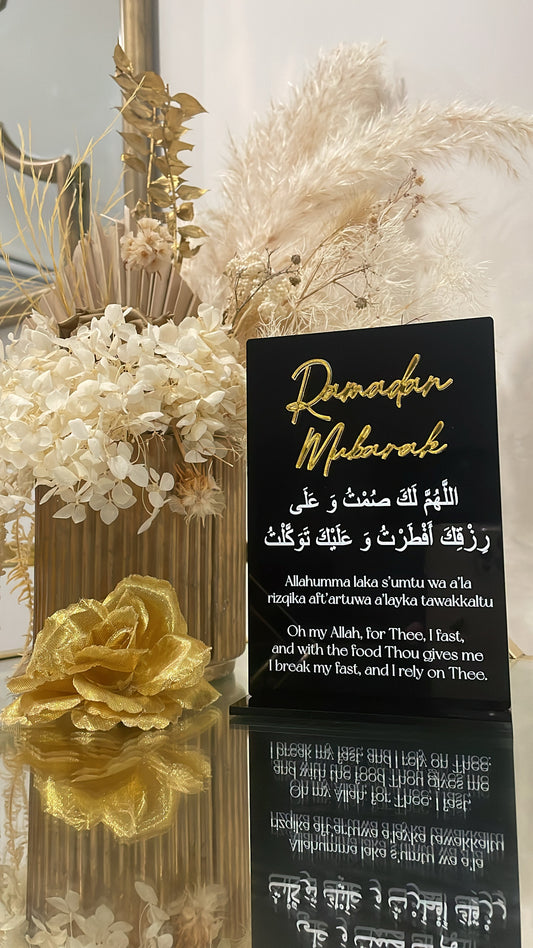 Ramadan
Mubarak
اللَّهُمَّ لَكَ صُمْتُ وَ عَلَى
رِزْقِكَ أَفْطَرْتُ وَ عَلَيْكَ تَوَكَّلْتُ
Allahumma laka s'umtu wa a'la
rizqika aft'artuwa a'layka tawakkaltu
Oh my Allah, for Thee, I fast,
and with the food Thou gives me
I break my fast, and I rely on Thee.